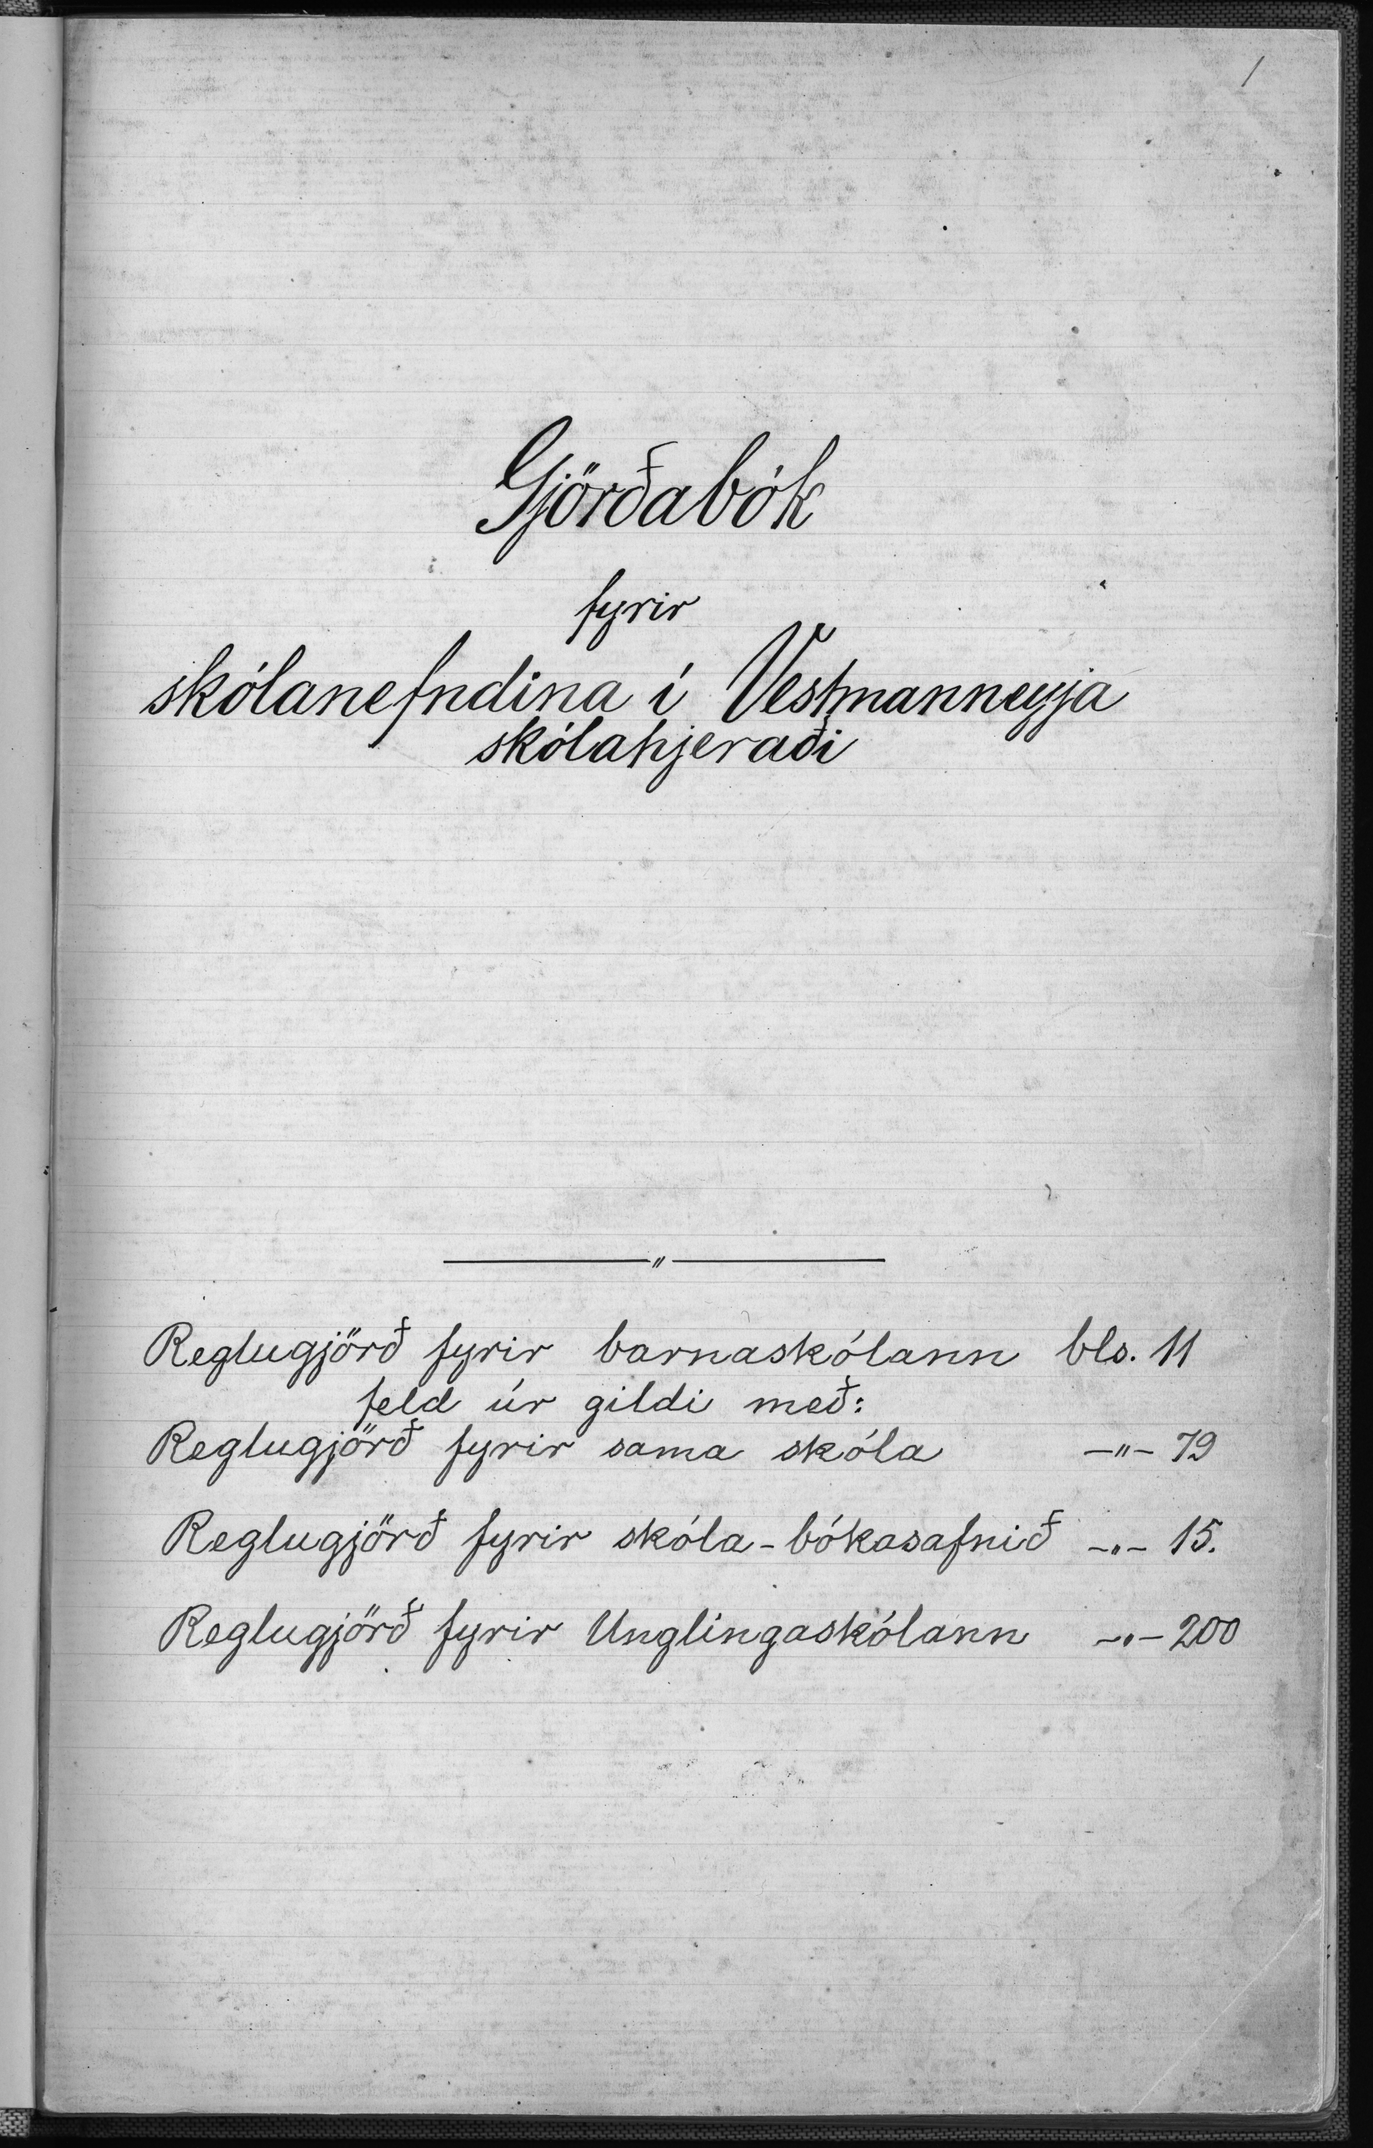 1
Gjörðabók
fyrir
skólanefndina í Vestmanneyja
skólahjeraði
—〃—
Reglugjörð fyrir barnaskólann bls. 11
feld úr gildi með:
Reglugjörð fyrir sama skóla —〃— 79
Reglugjörð fyrir skóla-bókasafnið —〃— 15.
Reglugjörð fyrir Unglingaskólann —〃— 200